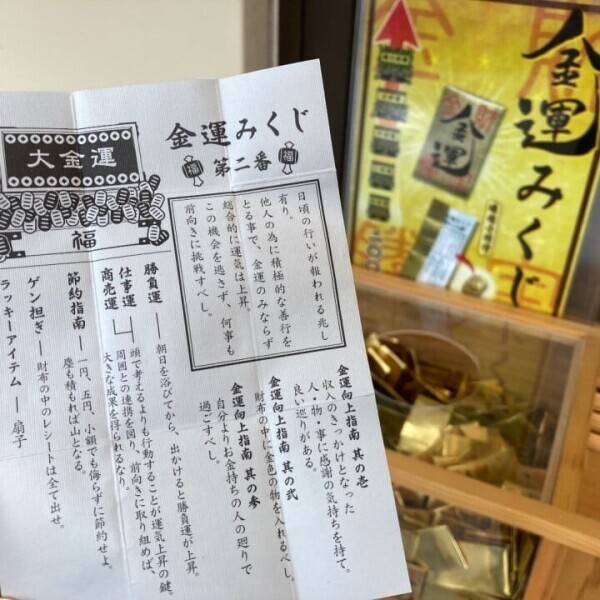 金運みくじ
福 第二番 福
大金運
福
日頃の行いが報われる兆し
有り。
他人の為に積極的な善行を
とる事で、金運のみならず
総合的に運気は上昇。
この機会を逃さず、何事も
前向きに挑戦すべし。
金運向上指南 其の壱
収入のきっかけとなった
人・物・事に感謝の気持ちを持て。
良い巡りがある。
金運向上指南 其の弐
財布の中に金色の物を入れるべし。
金運向上指南 其の参
自分よりお金持ちの人の廻りで
過ごすべし。
勝負運 ― 朝日を浴びてから、出かけると勝負運が上昇。
仕事運
商売運
頭で考えるよりも行動することが運気上昇の鍵。
周囲との連携を図り、前向きに取り組めば、
大きな成果を得られるなり。
節約指南 ― 一円、五円、小額でも侮らずに節約せよ。
塵も積もれば山となる。
ゲン担ぎ ― 財布の中のレシートは全て出せ。
ラッキーアイテム ― 扇子
金運みくじ
金運